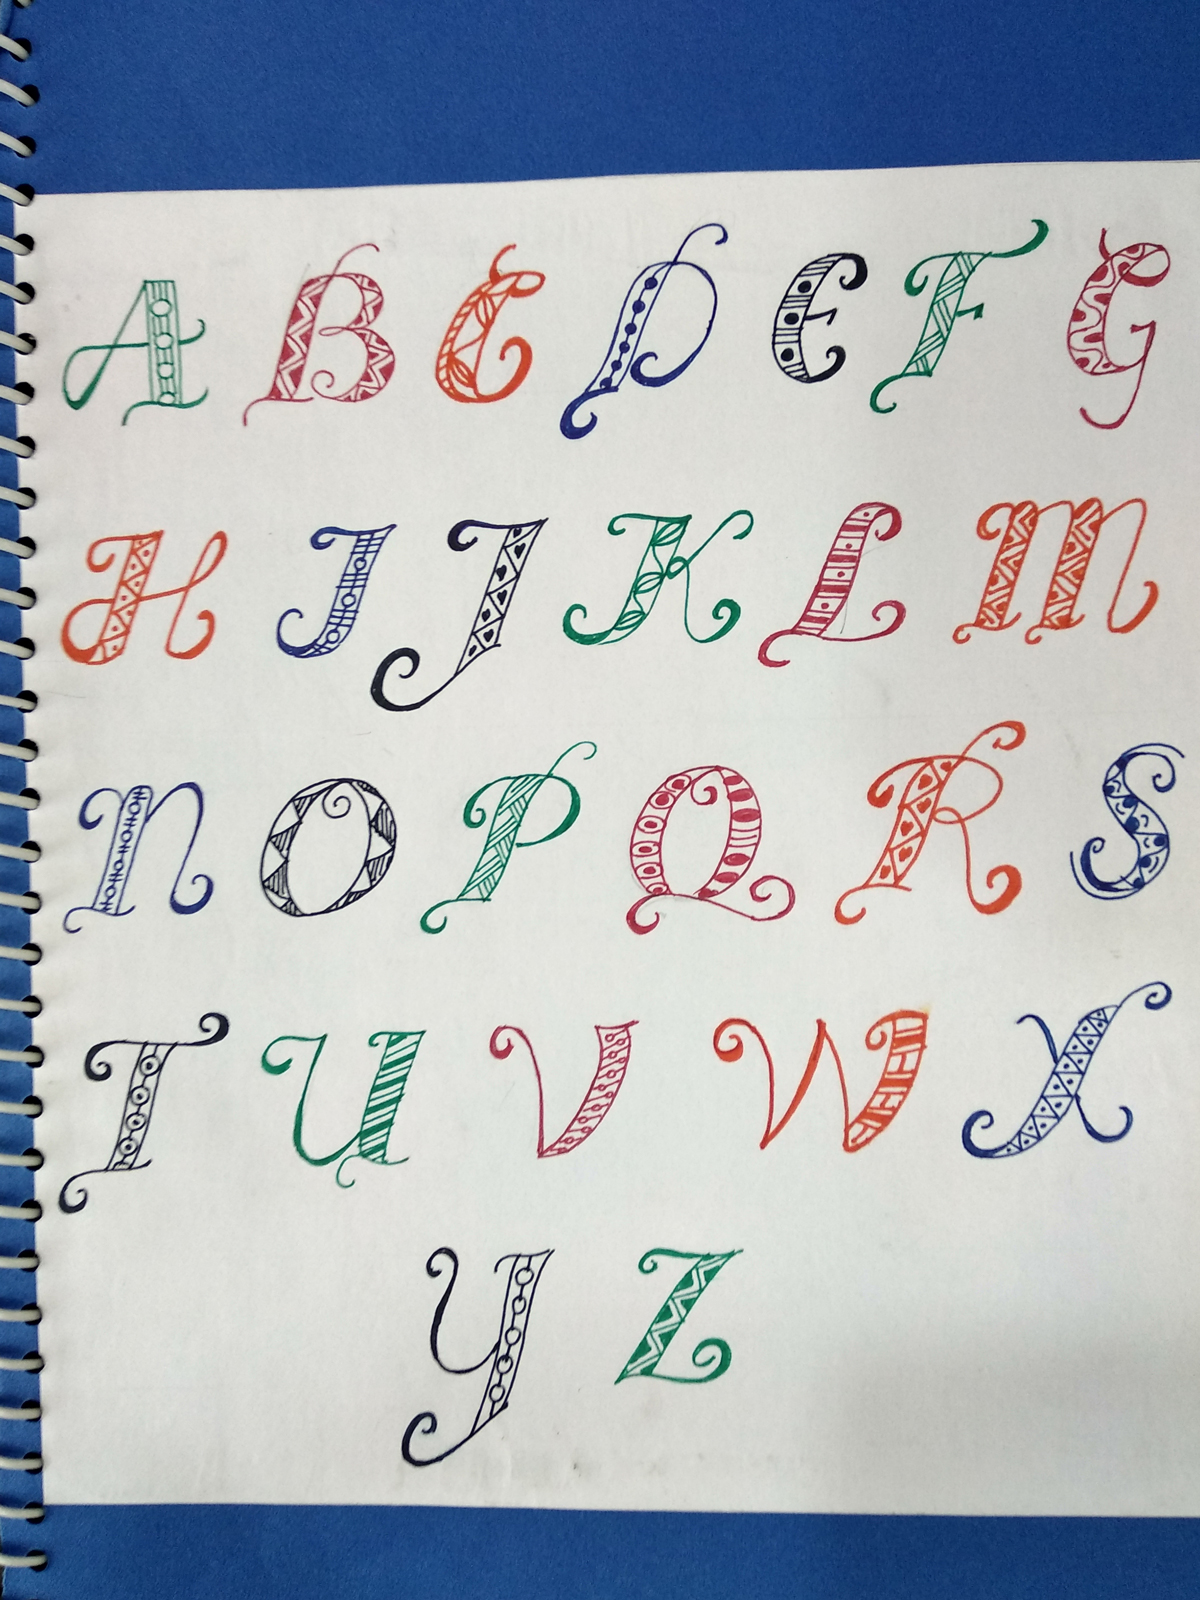 A B C D E F G
H I J K L M
N O P Q R S
T U V W X
Y Z